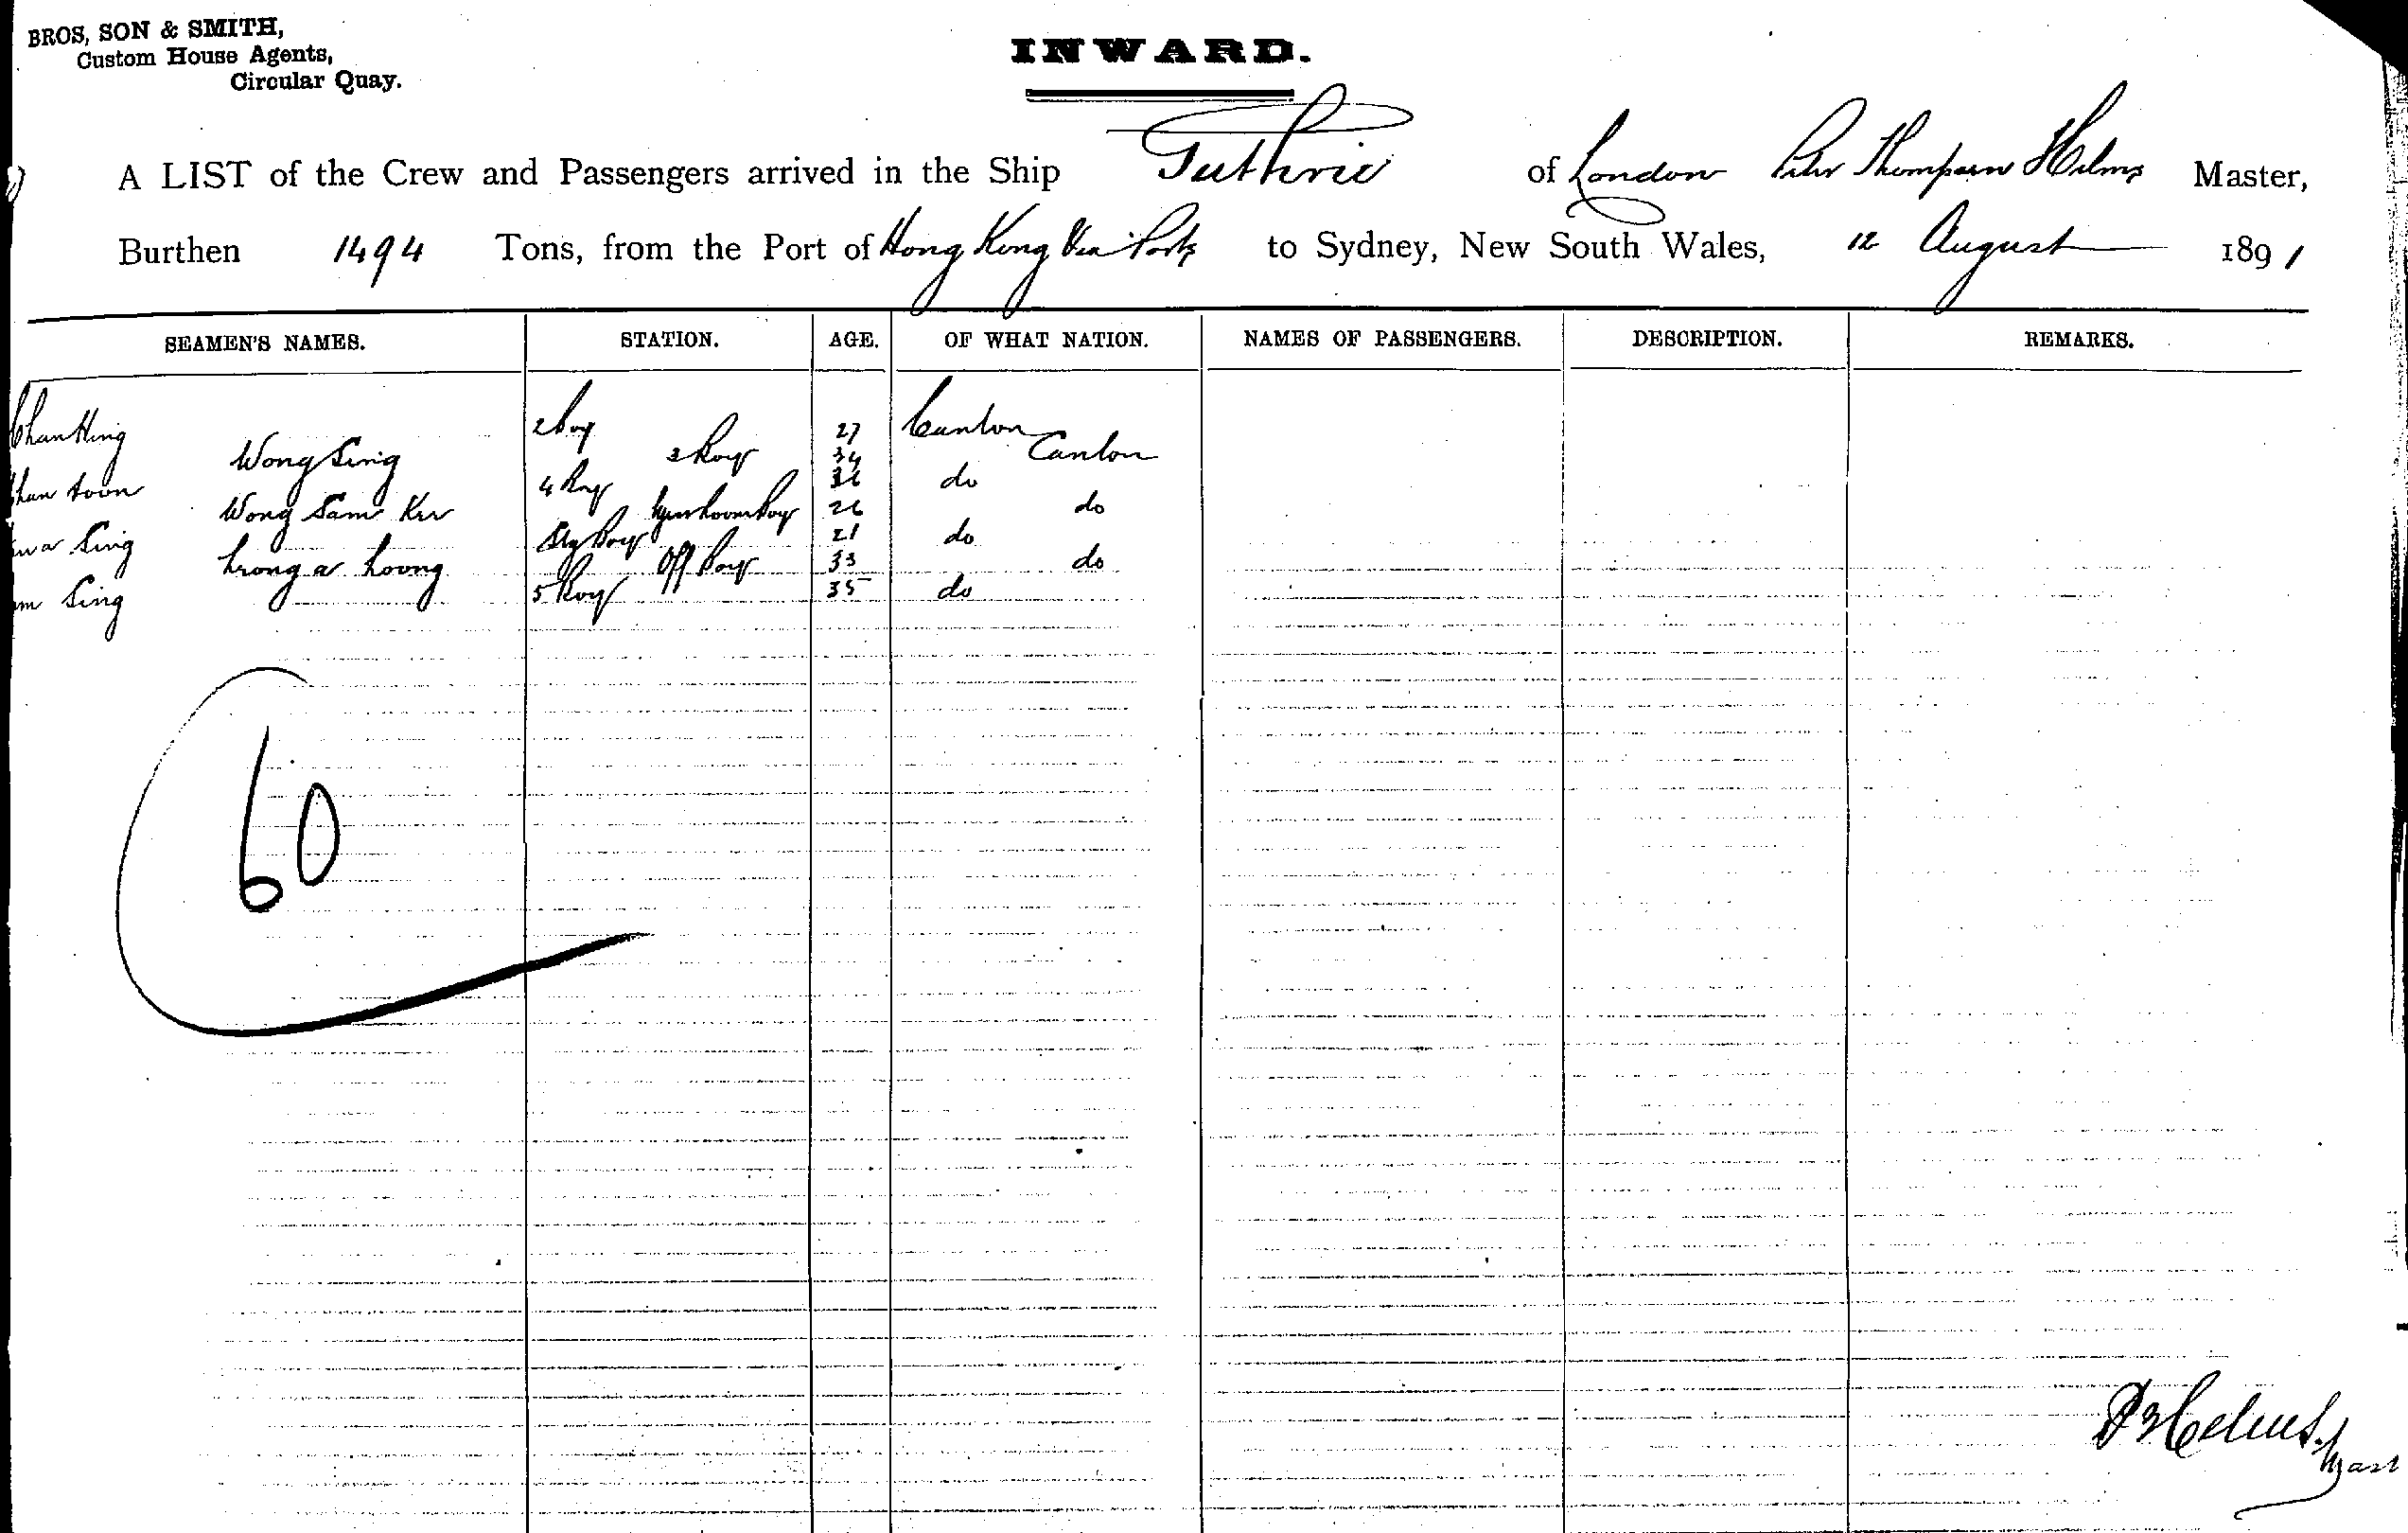 BROS, SON & SMITH,
Custom House Agents,
Circular Quay.
INWARD.
A LIST of the Crew and Passengers arrived in the Ship Guthrie of London Peter Thompson Helms Master,
Burthen 1494 Tons, from the Port of Hong Kong Via Ports to Sydney, New South Wales, 12 August 1891
SEAMEN'S NAMES. STATION. AGE. OF WHAT NATION. NAMES OF PASSENGERS. DESCRIPTION. REMARKS.
Chan Hing 2 Boy 27 Canton
Wong Sing 3 Boy 34 Canton
4 Boy 36 do
Wong Sam 26 do
Sing Boy 21 do
Loong Off Boy 33 do
Sing 5 Boy 35 do
60
P T Helms. Mast